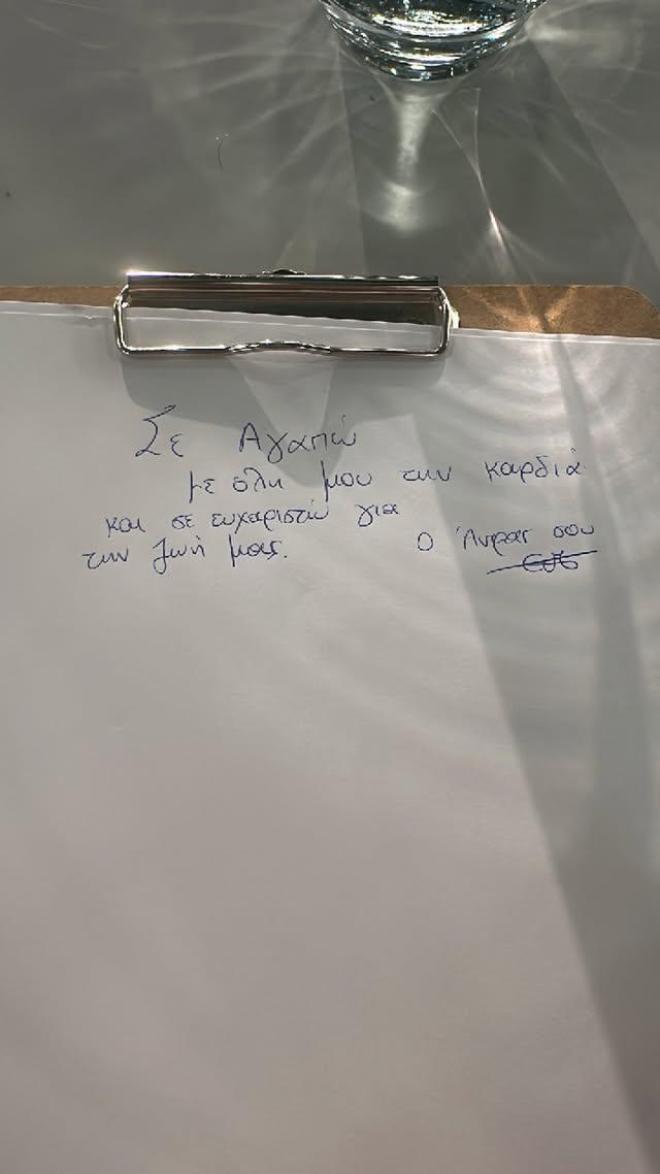 Σε Αγαπώ
με όλη μου την καρδιά
και σε ευχαριστώ για
την ζωή μας. Ο Άνρας σου